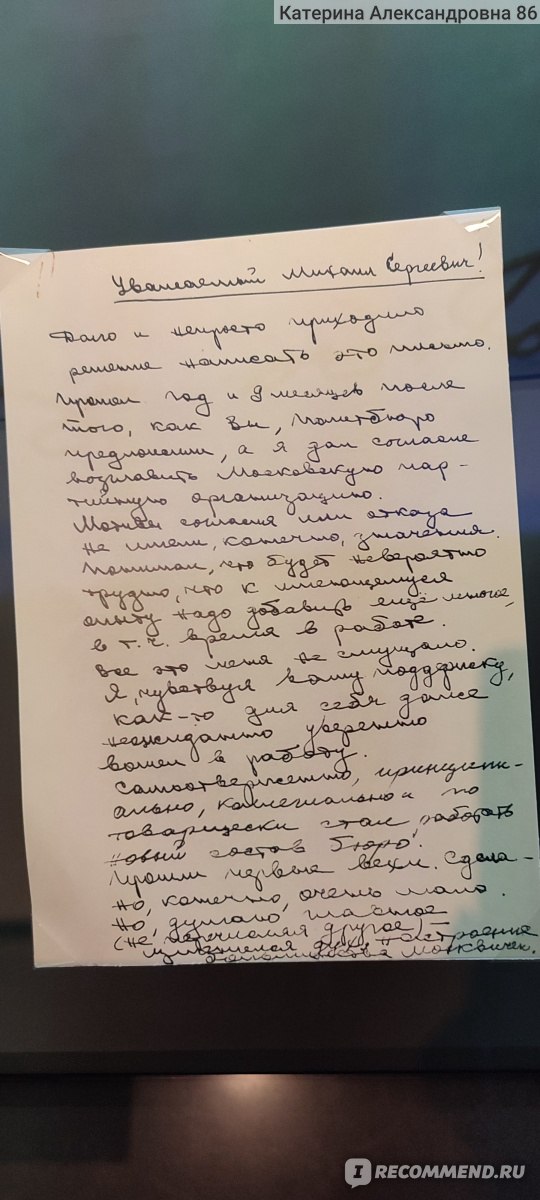 Катерина Александровна 86
Уважаемый Михаил Сергеевич!
Долго и непросто приходило
решение написать это письмо.
Прошел год и 9 месяцев после
того, как Вы, Политбюро
предложили, а я дал согласие
возглавить Московскую пар-
тийную организацию.
Мотивы согласия или отказа
не имели, конечно, значения.
Понимал, что будет невероятно
трудно, что к имеющемуся
опыту надо добавить ещё многое,
в т.ч. время в работе.
Все это меня не смущало.
Я, чувствуя Вашу поддержку,
как-то для себя даже
неожиданно уверенно
вошел в работу.
Самоотверженно, принципи-
ально, коллегиально и по
товарищески стал работать
новый состав бюро.
Прошли первые вехи. Сдела-
но, конечно, очень мало.
Но, думаю главное
(не перечисляя другое) –
изменился дух, настроение
большинства москвичей.
IRECOMMEND.RU